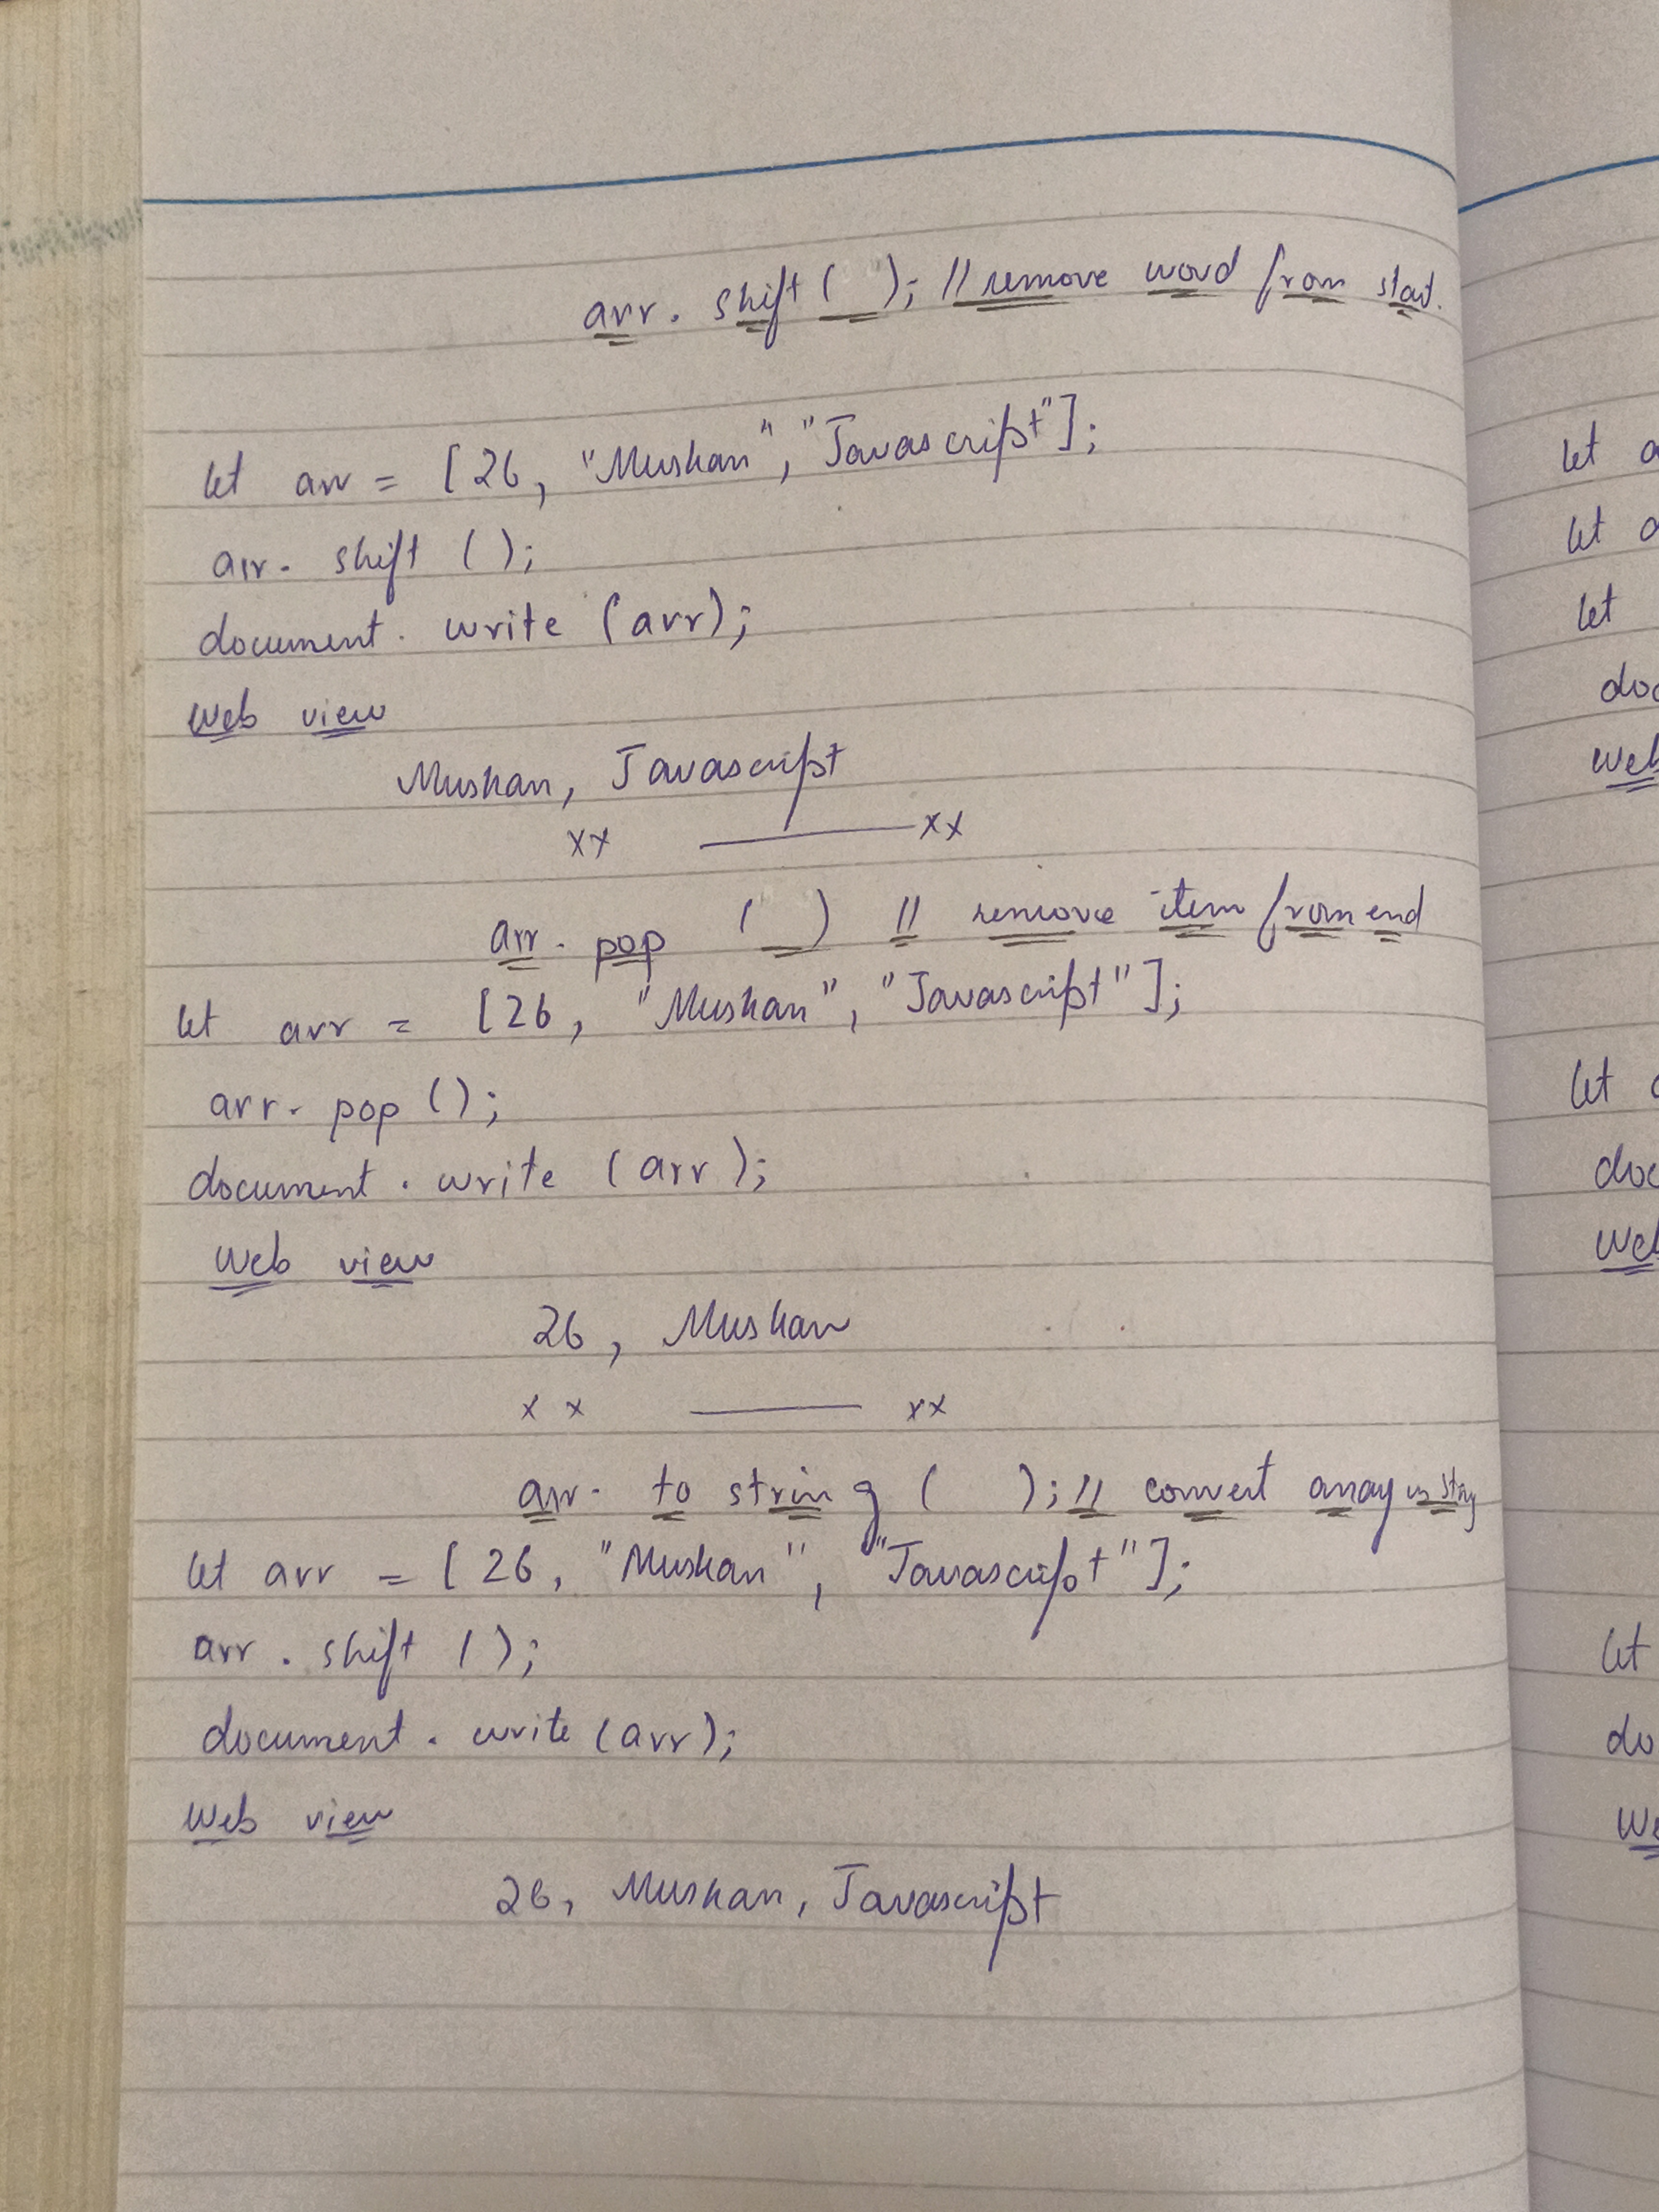 arr. shift ( ); // remove word from start.
let arr = [26, "Muskan", "Javascript"];
arr. shift ();
document. write (arr);
Web view
Muskan, Javascript
xx ——— xx
arr. pop ( ) // remove item from end
let arr = [26, "Muskan", "Javascript"];
arr. pop ();
document. write (arr);
Web view
26, Muskan
x x ——— xx
arr. to string ( ); // convert array in string
let arr = [26, "Muskan", "Javascript"];
arr. shift ();
document. write (arr);
Web view
26, Muskan, Javascript
let
let
let
Web
let
let